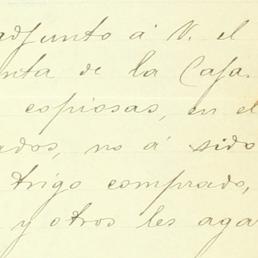 adjunto á V. el
nta de la Casa.
copiosas, en el
ados, no á sido
trigo comprado,
y otros les aga